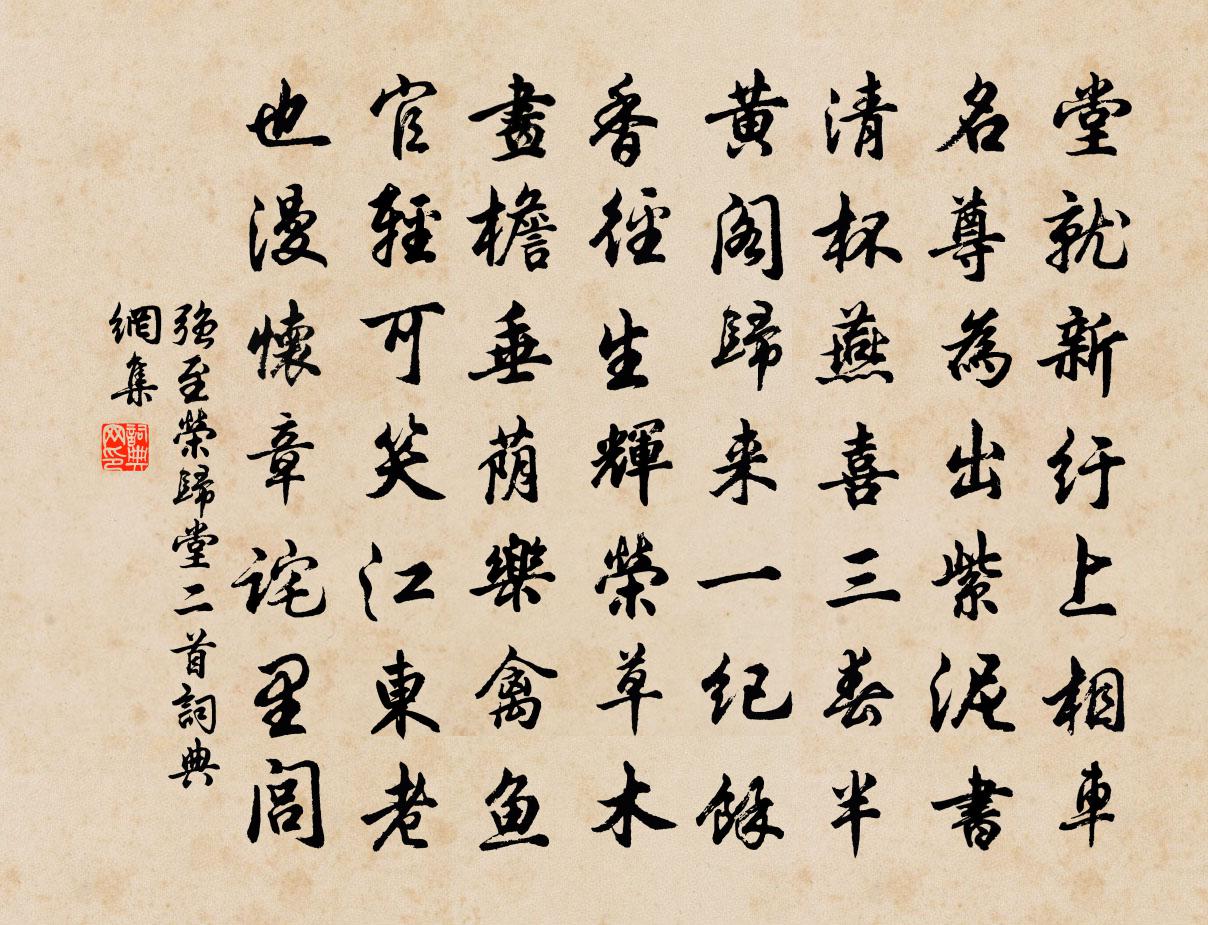 堂就新行上相車
名尊為出紫泥書
清杯燕喜三春半
黄閣歸来一纪餘
香徑生輝榮草木
畫檐垂荫樂禽鱼
官輕可笑江東老
也漫懷章詫里閭
强至榮歸堂二首詞典
網集
詞典网印